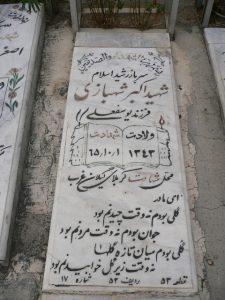 سرباز رشید اسلام
شهید اکبر شهبازی
فرزند یوسفعلی
ولادت شهادت
۱۳۴۳ ۶۵/۱۰/۱
محل شهادت کربلای گیلان غرب
ای مادر
گلی بودم نه وقت چیدنم بود
جوان بودم نه وقت مردنم بود
گلی بودم میان تازه گلها
نه وقت زیر گل خوابیدنم بود
قطعه ۵۳ ردیف ۵۲ شماره ۱۷